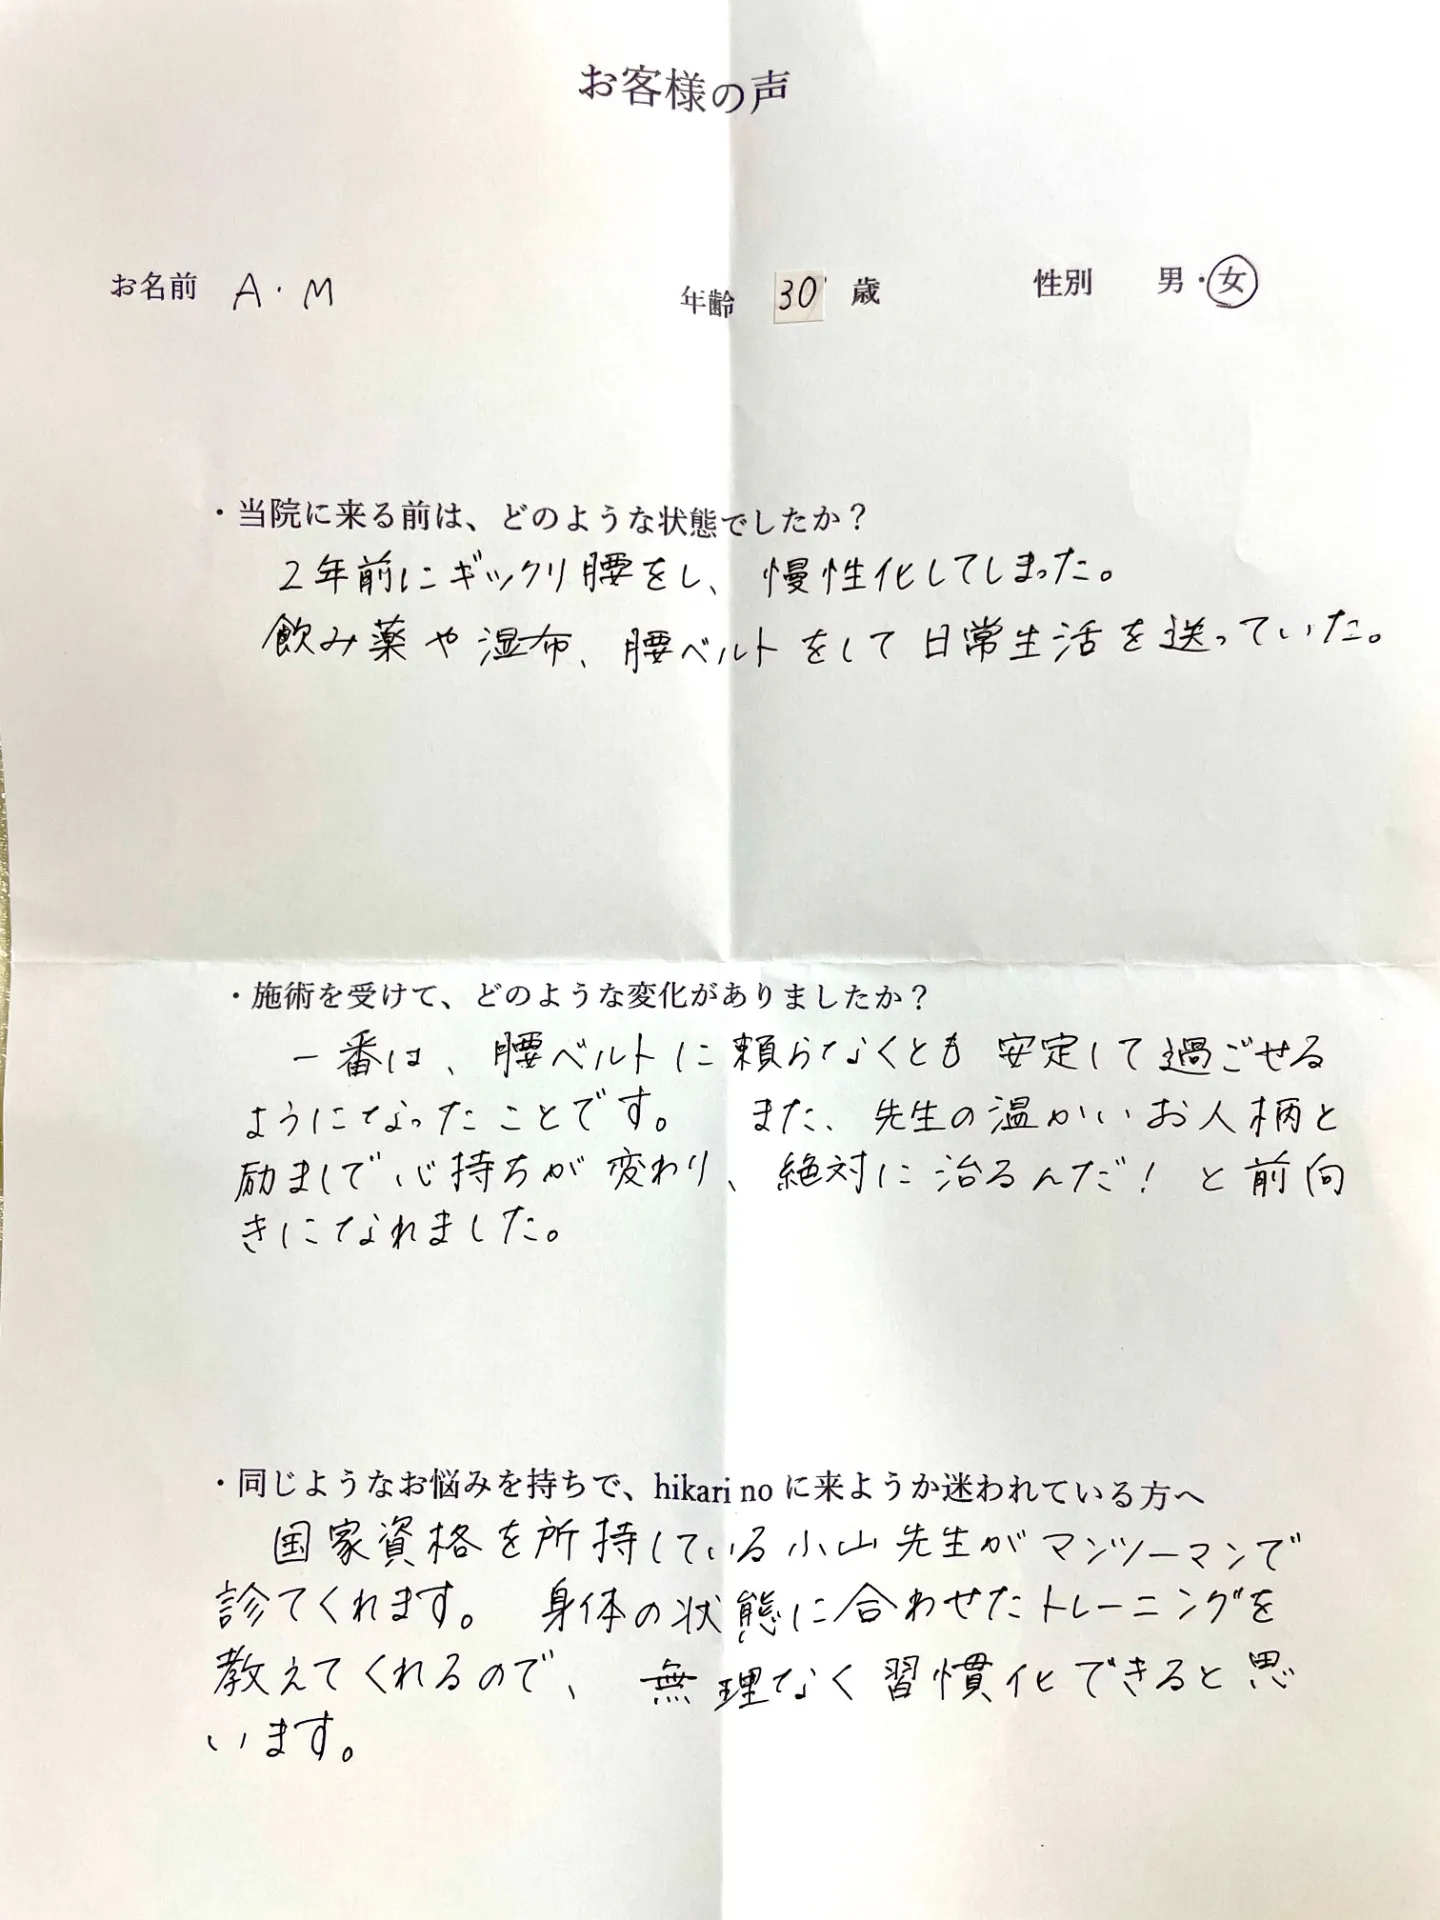 お客様の声
お名前 A・M 年齢 30 歳 性別 男・女
・当院に来る前は、どのような状態でしたか？
2年前にギックリ腰をし、慢性化してしまった。
飲み薬や湿布、腰ベルトをして日常生活を送っていた。
・施術を受けて、どのような変化がありましたか？
一番は、腰ベルトに頼らなくとも安定して過ごせる
ようになったことです。また、先生の温かいお人柄と
励ましで心持ちが変わり、絶対に治るんだ！と前向
きになれました。
・同じようなお悩みを持ちで、hikari no に来ようか迷われている方へ
国家資格を所持している小山先生がマンツーマンで
診てくれます。身体の状態に合わせたトレーニングを
教えてくれるので、無理なく習慣化できると思
います。